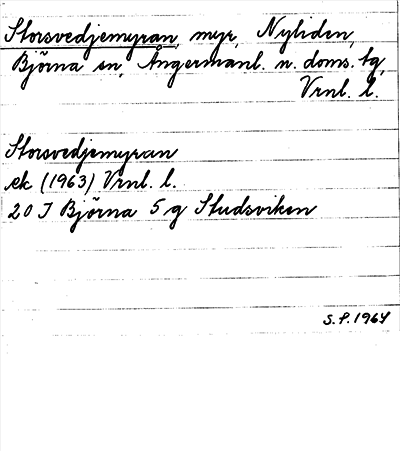 Storsvedjemyran, myr, Nyliden,
Björna sn, Ångermanl. n. doms. tg,
Vrnl. l.
Storsvedjemyran
ek (1963) Vrnl. l.
20 J Björna 5 g Studsviken
S.P. 1964